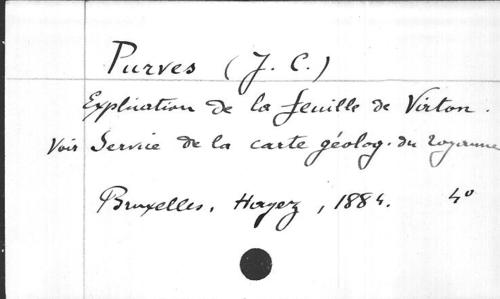 Purves (J. C.)
Explication de la feuille de Virton.
Voir Service de la carte géolog. du royaume
Bruxelles, Hayez, 1884. 4º